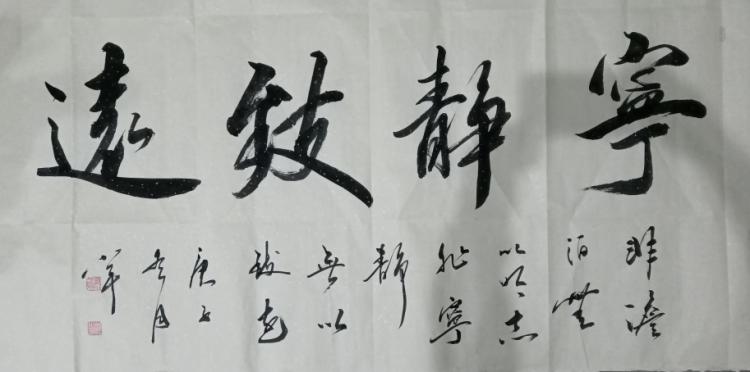 寧靜致遠
非澹
泊無
以明志
非寧
靜
無以
致遠
庚子
冬月